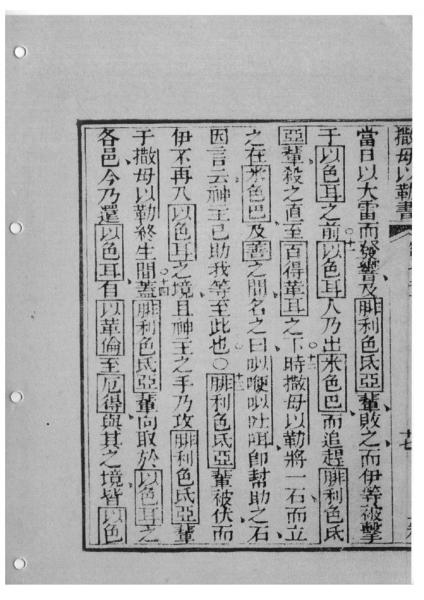 撒母以勒書
當日以大雷而發響及腓利色氏亞輩敗之而伊等被擊
于以色耳之前以色耳人乃出米色巴而追趕腓利色氏
亞輩殺之直至百得革耳之下時撒母以勒將一石而立
之在米色巴及善之間名之曰以唵以吐咡卽幫助之石
因言云神主已助我等至此也○腓利色氏亞輩被伏而
伊不再入以色耳之境且神主之手乃攻腓利色氏亞輩
于撒母以勒終生間蓋腓利色氏亞輩向取於以色耳之
各邑今乃還以色耳有以革倫至厄得與其之境皆以色